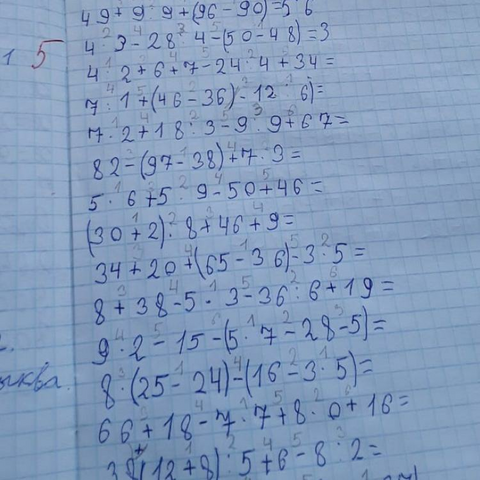 49+9:9+(96-90)=5·6
4·9-28:4-(50-48)=3
1 5
4·2+6+7-24:4+34=
7·1+(46-36)-12:6)=
7·2+18:3-9:9+67=
82-(97-38)+7·3=
5·6+5·9-50+46=
(30+2):8+46+9=
34+20+(65-36)-3·5=
8+38-5·3-36:6+19=
9·2-15-(5·7-28-5)=
8·(25-24)-(16-3·5)=
66+18-7·7+8·0+16=
38+(12+8):5+6-8:2=